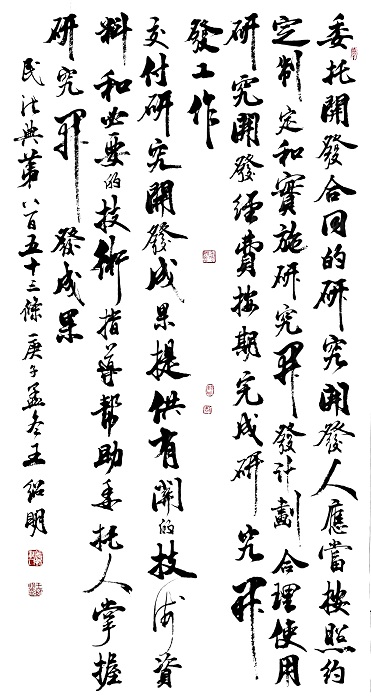 委托開發合同的研究開發人應當按照約
定制定和實施研究開發計劃合理使用
研究開發經費按期完成研究開
發工作
交付研究開發成果提供有關的技術資
料和必要的技術指導幫助委托人掌握
研究開發成果
民法典第八百五十三條 庚子孟冬王紹明